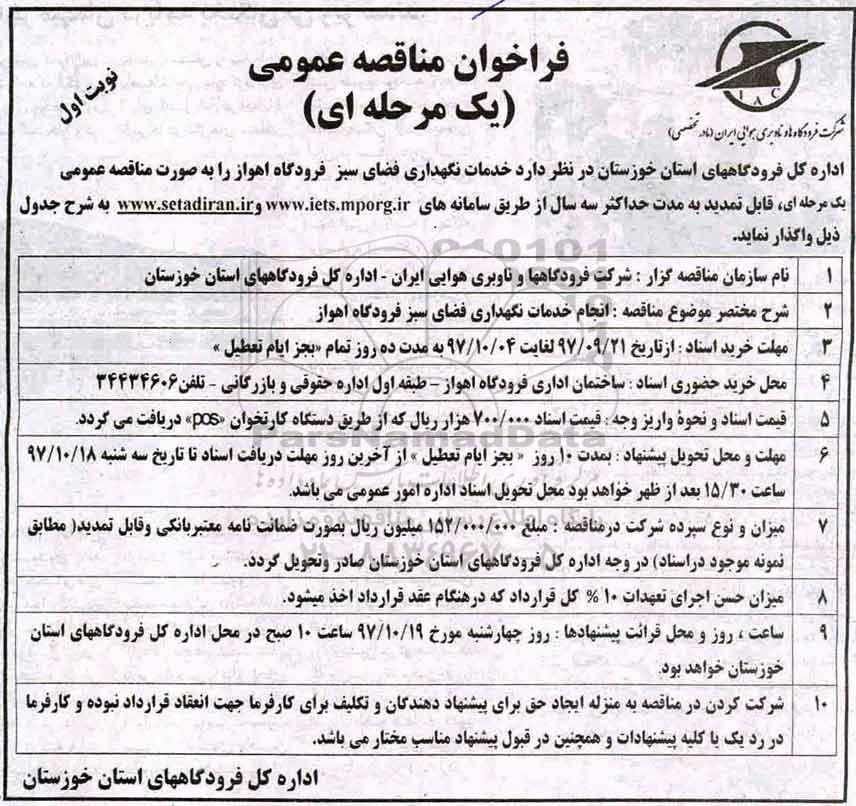 فراخوان مناقصه عمومی
(یک مرحله ای)
نوبت اول
IAC
شرکت فرودگاه‌ها و ناوبری هوایی ایران (مادر تخصصی)
اداره کل فرودگاههای استان خوزستان در نظر دارد خدمات نگهداری فضای سبز فرودگاه اهواز را به صورت مناقصه عمومی
یک مرحله ای، قابل تمدید به مدت حداکثر سه سال از طریق سامانه های www.iets.mporg.ir و www.setadiran.ir به شرح جدول
ذیل واگذار نماید.
۱ نام سازمان مناقصه گزار : شرکت فرودگاهها و ناوبری هوایی ایران - اداره کل فرودگاههای استان خوزستان
۲ شرح مختصر موضوع مناقصه : انجام خدمات نگهداری فضای سبز فرودگاه اهواز
۳ مهلت خرید اسناد : ازتاریخ ۹۷/۰۹/۲۱ لغایت ۹۷/۱۰/۰۴ به مدت ده روز تمام «بجز ایام تعطیل »
۴ محل خرید حضوری اسناد : ساختمان اداری فرودگاه اهواز – طبقه اول اداره حقوقی و بازرگانی - تلفن ۳۴۴۳۴۶۰۶
۵ قیمت اسناد و نحوۀ واریز وجه : قیمت اسناد ۷۰۰/۰۰۰ هزار ریال که از طریق دستگاه کارتخوان «pos» دریافت می گردد.
۶ مهلت و محل تحویل پیشنهاد : بمدت ۱۰ روز « بجز ایام تعطیل » از آخرین روز مهلت دریافت اسناد تا تاریخ سه شنبه ۹۷/۱۰/۱۸
ساعت ۱۵/۳۰ بعد از ظهر خواهد بود محل تحویل اسناد اداره امور عمومی می باشد.
۷ میزان و نوع سپرده شرکت درمناقصه : مبلغ ۱۵۲/۰۰۰/۰۰۰ میلیون ریال بصورت ضمانت نامه معتبربانکی وقابل تمدید( مطابق
نمونه موجود دراسناد) در وجه اداره کل فرودگاههای استان خوزستان صادر وتحویل گردد.
۸ میزان حسن اجرای تعهدات ۱۰ % کل قرارداد که درهنگام عقد قرارداد اخذ میشود.
۹ ساعت ، روز و محل قرائت پیشنهادها : روز چهارشنبه مورخ ۹۷/۱۰/۱۹ ساعت ۱۰ صبح در محل اداره کل فرودگاههای استان
خوزستان خواهد بود.
۱۰ شرکت کردن در مناقصه به منزله ایجاد حق برای پیشنهاد دهندگان و تکلیف برای کارفرما جهت انعقاد قرارداد نبوده و کارفرما
در رد یک یا کلیه پیشنهادات و همچنین در قبول پیشنهاد مناسب مختار می باشد.
اداره کل فرودگاههای استان خوزستان
ParsNamadData